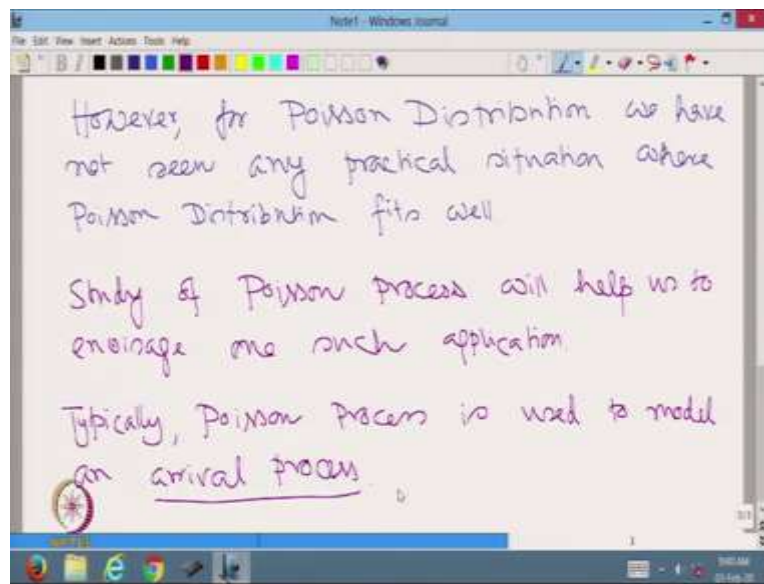 Note1 - Windows Journal
File Edit View Insert Actions Tools Help
However, for Poisson Distribution we have
not seen any practical situation where
Poisson Distribution fits well
Study of Poisson process will help us to
envisage one such application.
Typically, Poisson Process is used to model
an arrival process.
NPTEL